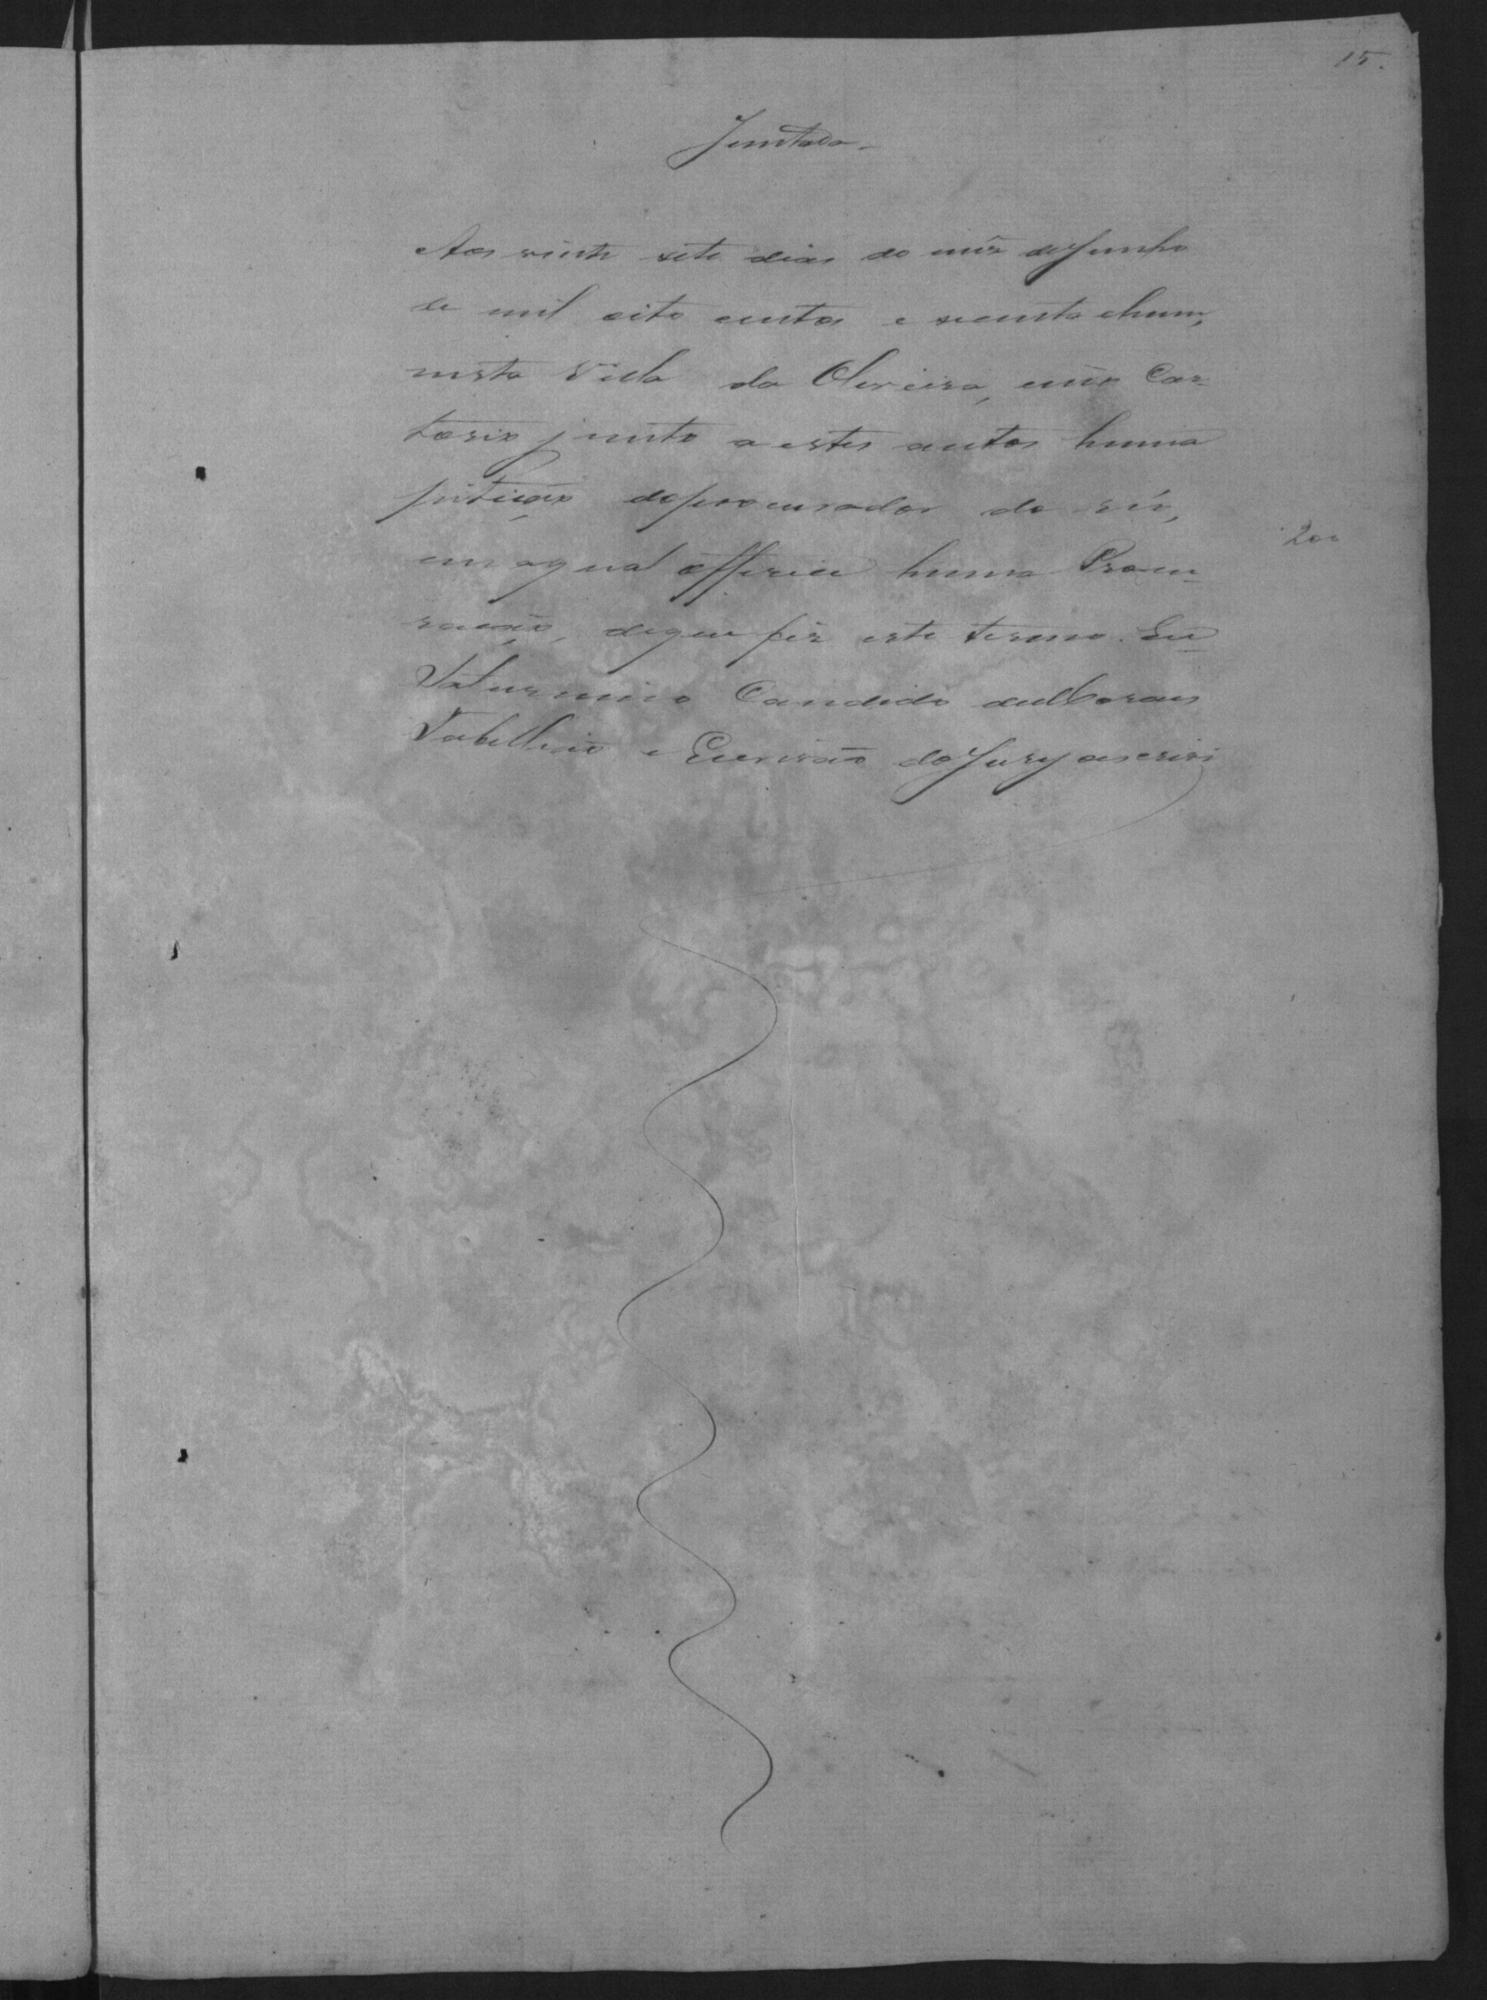 15.
Juntada.
Aos vinte sete dias do mês de Junho
de mil oito centos e secenta e hum,
nesta Villa da Oliveira, em o Car-
torio junto a estes autos huma
petição do procurador do réo,
em a qual offerece huma Procu-
ração, de que fiz este termo. Eu
Saturnino Candido de Moraes
Tabellião e Escrivão do Jury escrivi
200